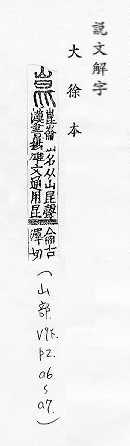 說文解字
大徐本
崑
崑崙山名从山昆聲
漢書楊雄文通用昆
侖古
渾切
(山部. V9下. P2. a6. s a7.)